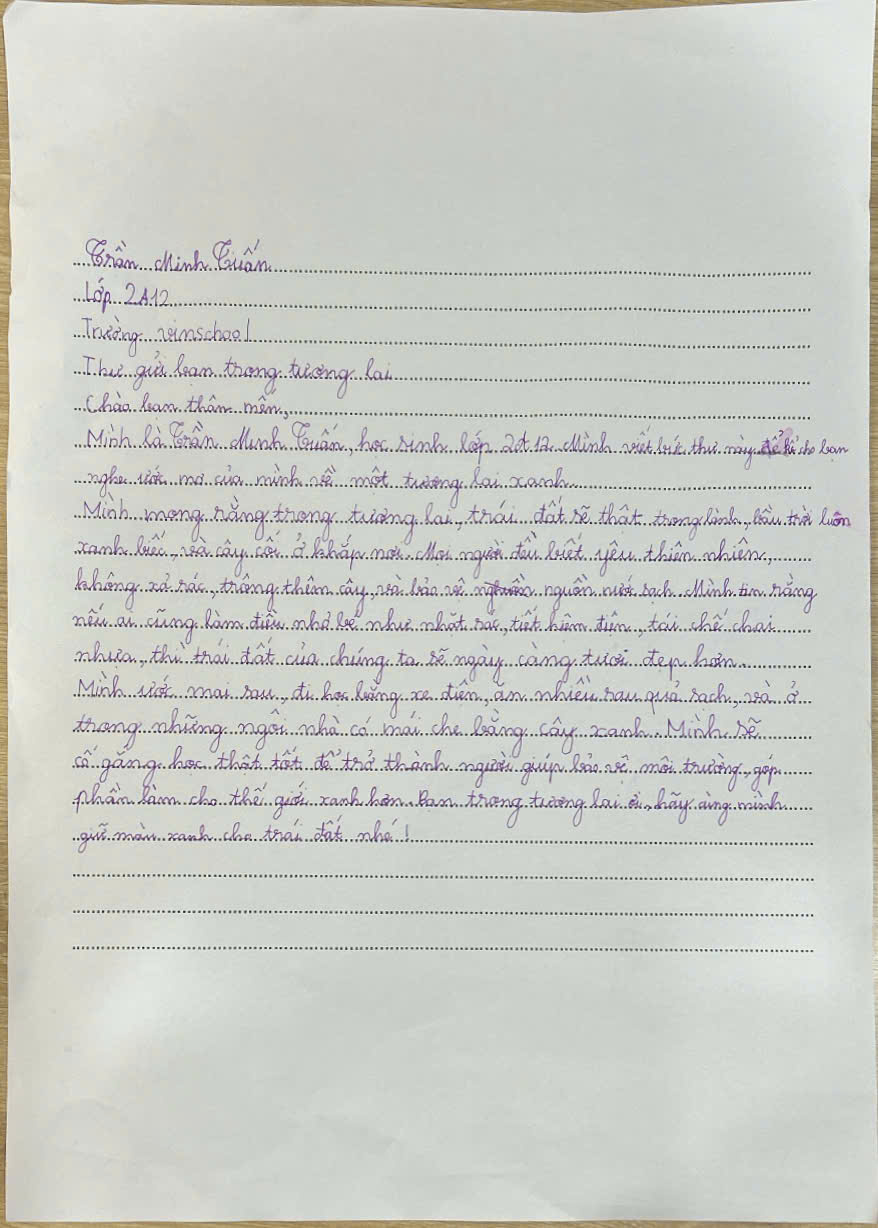 Trần Minh Tuấn
Lớp 2A12
Trường vinschool
Thư gửi bạn trong tương lai
Chào bạn thân mến,
Mình là Trần Minh Tuấn, học sinh lớp 2A12. Mình viết bức thư này để kể cho bạn
nghe ước mơ của mình về một tương lai xanh.
Mình mong rằng trong tương lai, trái đất sẽ thật trong lành, bầu trời luôn
xanh biếc, và cây cối ở khắp nơi. Mọi người đều biết yêu thiên nhiên,
không xả rác, trồng thêm cây, và bảo vệ nguồn nước sạch. Mình tin rằng
nếu ai cũng làm điều nhỏ bé như nhặt rác, tiết kiệm điện, tái chế chai
nhựa, thì trái đất của chúng ta sẽ ngày càng tươi đẹp hơn.
Mình ước mai sau, đi học bằng xe điện, ăn nhiều rau quả sạch, và ở
trong những ngôi nhà có mái che bằng cây xanh. Mình sẽ
cố gắng học thật tốt để trở thành người giúp bảo vệ môi trường, góp
phần làm cho thế giới xanh hơn. Bạn trong tương lai ơi, hãy cùng mình
giữ màu xanh cho trái đất nhé!